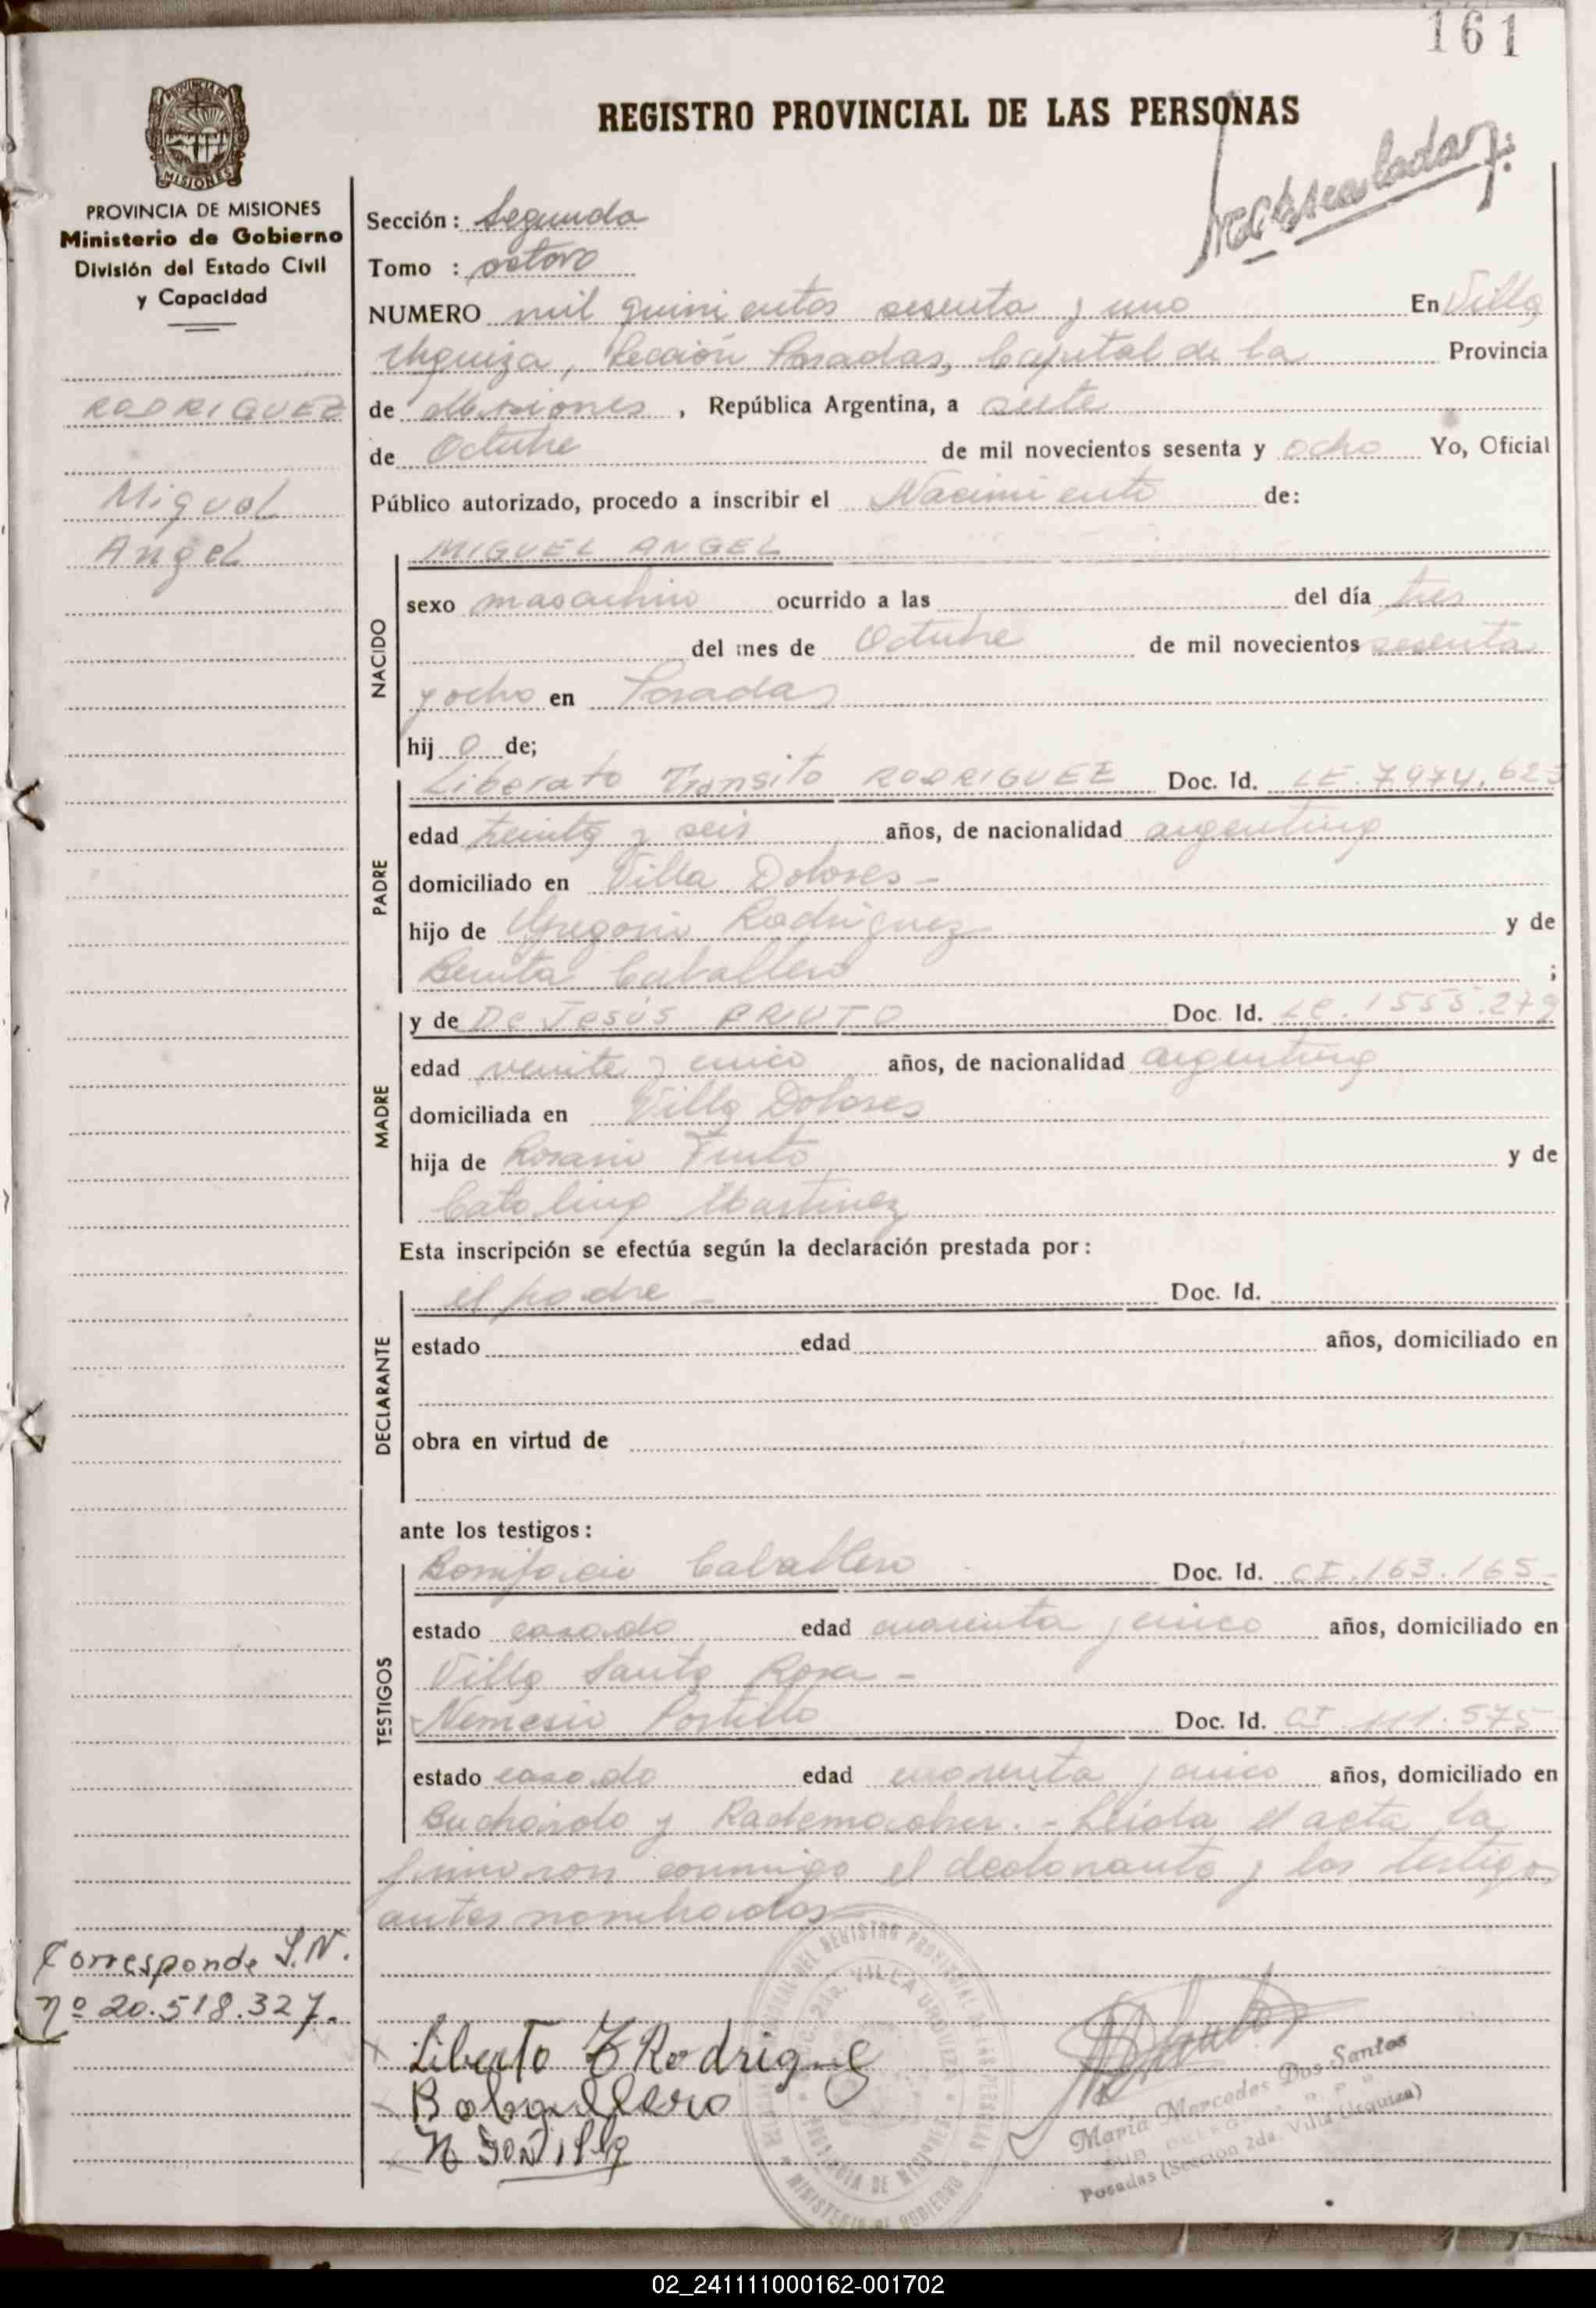 161
REGISTRO PROVINCIAL DE LAS PERSONAS
PROVINCIA DE MISIONES
Ministerio de Gobierno
División del Estado Civil
y Capacidad
RODRIGUEZ
Miguel
Angel
Sección: Segunda
Tomo : octavo
NUMERO mil quinientos sesenta y uno En Villa
Urquiza, Sección Posadas, Capital de la Provincia
de Misiones, República Argentina, a siete
de Octubre de mil novecientos sesenta y ocho Yo, Oficial
Público autorizado, procedo a inscribir el Nacimiento de:
NACIDO
MIGUEL ANGEL
sexo masculino ocurrido a las del día tres
del mes de Octubre de mil novecientos sesenta
y ocho en Posadas
hij o de;
PADRE
Liberato Transito RODRIGUEZ Doc. Id. LE. 7.974.623
edad treinta y seis años, de nacionalidad argentina
domiciliado en Villa Dolores -
hijo de Gregorio Rodriguez y de
Benita Caballero ;
MADRE
y de De Jesús Doc. Id. LC. 1555.279
edad veinte y cinco años, de nacionalidad argentina
domiciliada en Villa Dolores
hija de Rosario y de
Catalina Martinez
Esta inscripción se efectúa según la declaración prestada por:
DECLARANTE
el padre - Doc. Id.
estado edad años, domiciliado en
obra en virtud de
ante los testigos:
TESTIGOS
Bonifacio Caballero Doc. Id. CI. 163.165-
estado casado edad cuarenta y cinco años, domiciliado en
Villa Santa Rosa -
Nemesio Portillo Doc. Id. CI. 111.575
estado casado edad cuarenta y cinco años, domiciliado en
Buchardo y Rademacher. - Leida el acta la
firmaron conmigo el declarante y los testigos
antes nombrados
Corresponde I.N.
nº 20.518.327.
Liberto T Rodrigue
María Mercedes Dos Santos
Posadas (Sección 2da. Villa Urquiza)
02_241111000162-001702